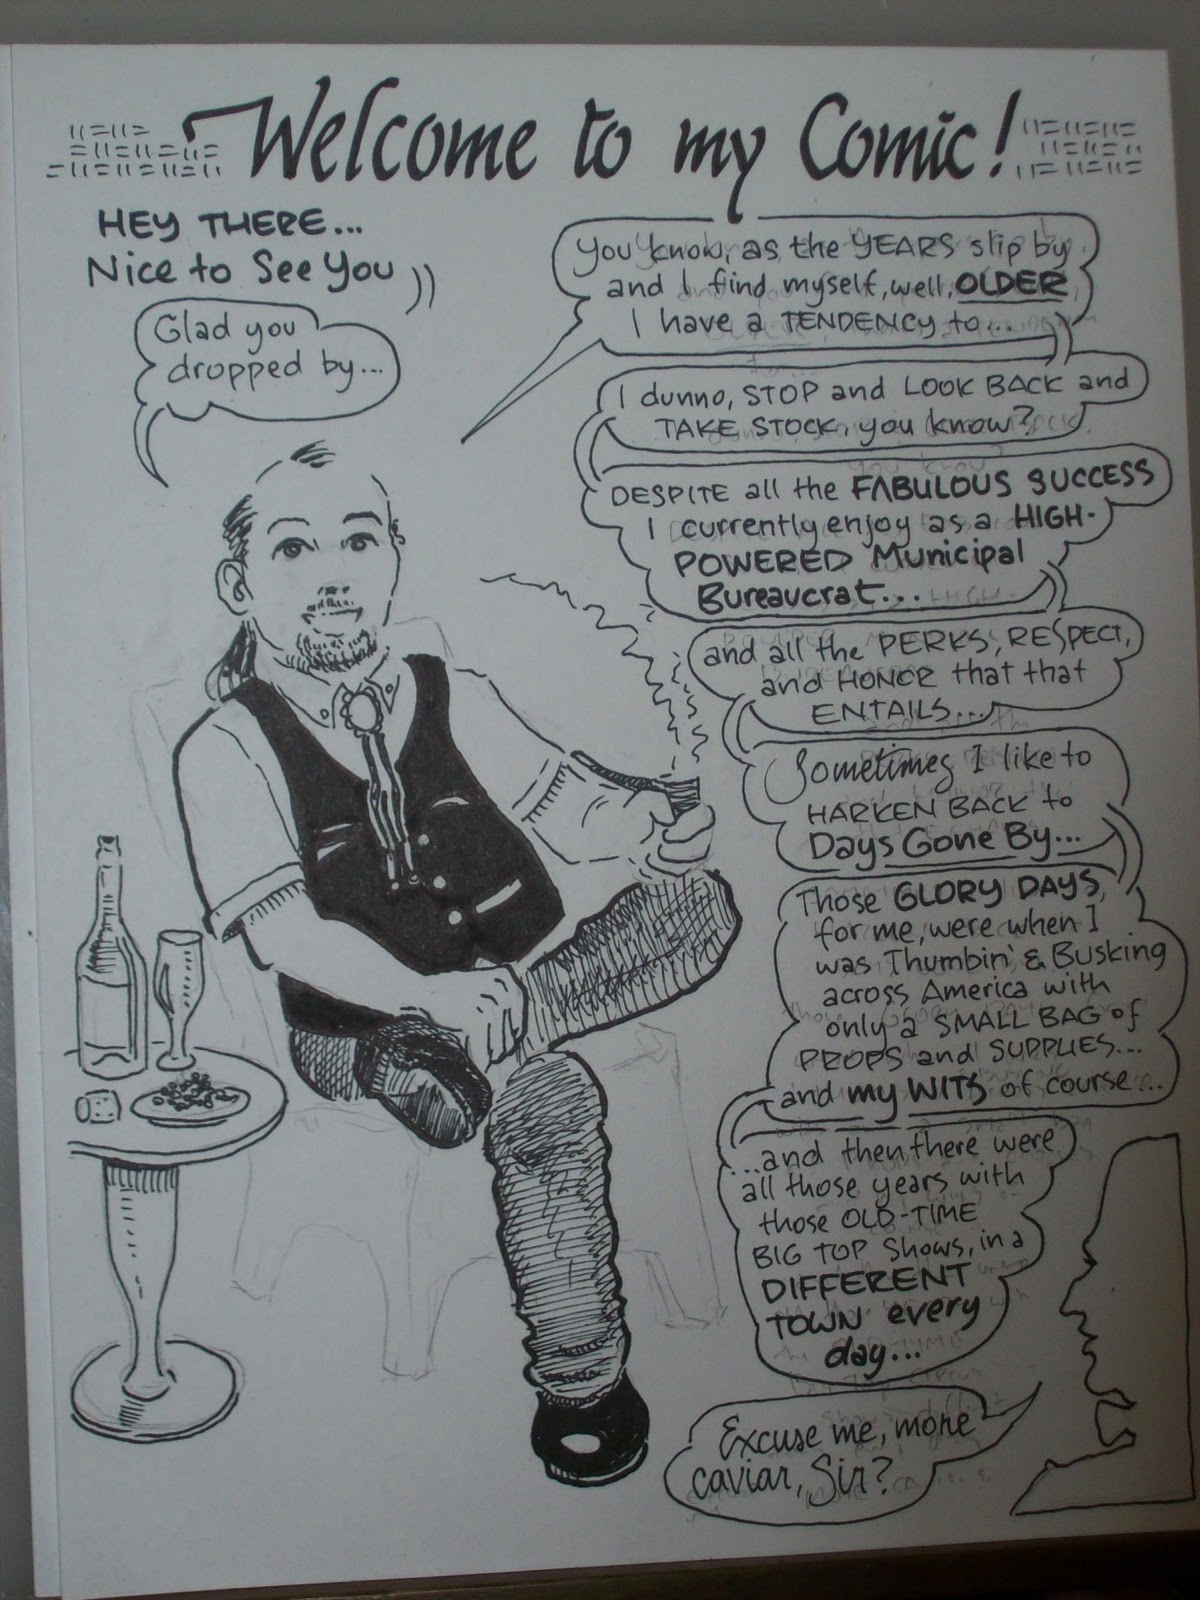 Welcome to my Comic!
HEY THERE...
Nice to See You
Glad you
dropped by...
You know, as the YEARS slip by
and I find myself, well, OLDER
I have a TENDENCY to...
I dunno, STOP and LOOK BACK and
TAKE STOCK, you know?
DESPITE all the FABULOUS SUCCESS
I currently enjoy as a HIGH-
POWERED Municipal
Bureaucrat...
and all the PERKS, RESPECT,
and HONOR that that
ENTAILS...
Sometimes I like to
HARKEN BACK to
Days Gone By...
Those GLORY DAYS,
for me, were when I
was Thumbin' & Busking
across America with
only a SMALL BAG of
PROPS and SUPPLIES...
and my WITS of course...
...and then there were
all those years with
those OLD-TIME
BIG TOP Shows, in a
DIFFERENT
TOWN every
day...
Excuse me, more
caviar, Sir?